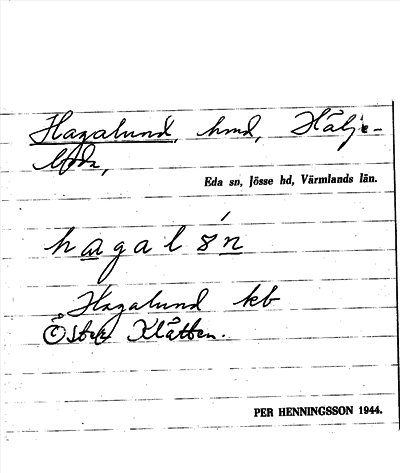 Hagalund, hmd, Hälje-
boda,
Eda sn, Jösse hd, Värmlands län.
hagalón
Hagalund kb
Öster Klätten.
PER HENNINGSSON 1944.